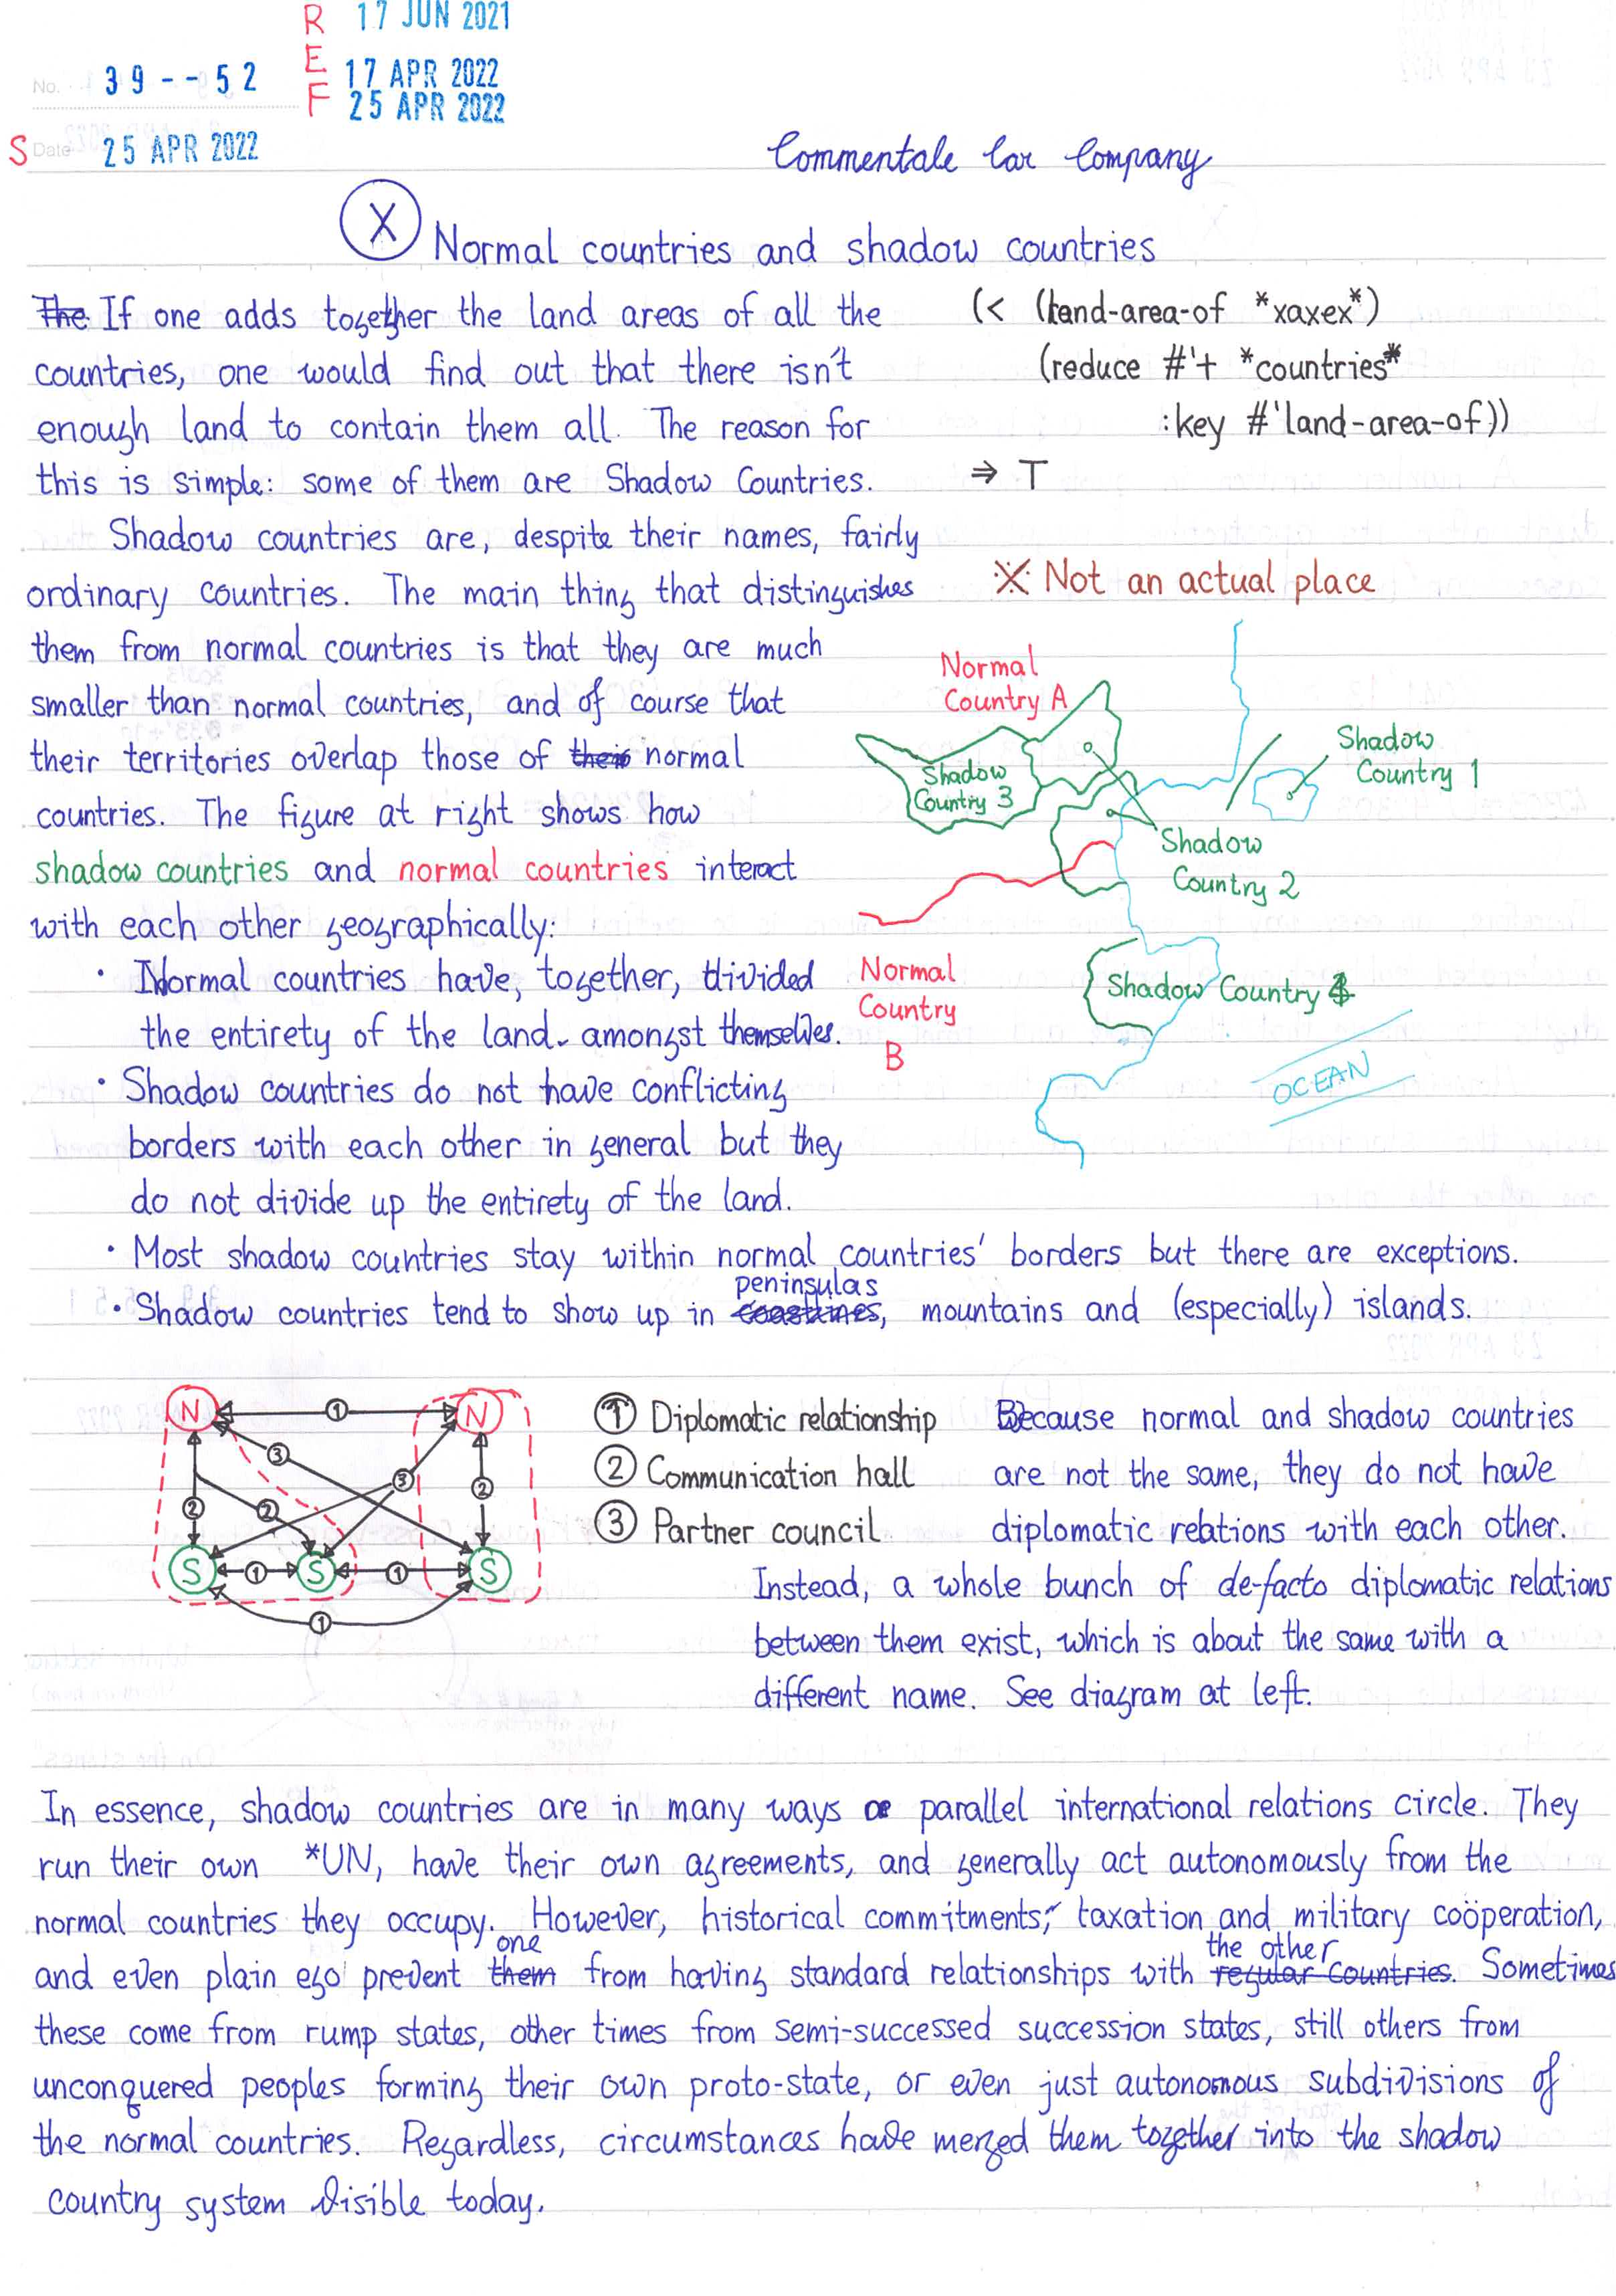 R 17 JUN 2021
E 17 APR 2022
F 25 APR 2022
No. 39--52
S Date 25 APR 2022
Commentale Car Company
X Normal countries and shadow countries
The If one adds together the land areas of all the
countries, one would find out that there isn't
enough land to contain them all. The reason for
this is simple: some of them are Shadow Countries.
(< (land-area-of *xaxex*)
(reduce #'+ *countries*
:key #'land-area-of))
⇒ T
Shadow countries are, despite their names, fairly
ordinary countries. The main thing that distinguishes
them from normal countries is that they are much
smaller than normal countries, and of course that
their territories overlap those of their normal
countries. The figure at right shows how
shadow countries and normal countries interact
with each other geographically:
※ Not an actual place
Normal
Country A
Shadow
Country 3
Shadow
Country 1
Shadow
Country 2
Normal
Country
B
Shadow Country 4
OCEAN
· Normal countries have, together, divided
the entirety of the land amongst themselves.
· Shadow countries do not have conflicting
borders with each other in general but they
do not divide up the entirety of the land.
· Most shadow countries stay within normal countries' borders but there are exceptions.
· Shadow countries tend to show up in coastlines peninsulas, mountains and (especially) islands.
N 1 N
3 3
2 2 2
S 1 S 1 S
1
① Diplomatic relationship
② Communication hall
③ Partner council
Because normal and shadow countries
are not the same, they do not have
diplomatic relations with each other.
Instead, a whole bunch of de-facto diplomatic relations
between them exist, which is about the same with a
different name. See diagram at left.
In essence, shadow countries are in many ways a parallel international relations circle. They
run their own *UN, have their own agreements, and generally act autonomously from the
normal countries they occupy. However, historical commitments, taxation and military coöperation,
and even plain ego prevent them one from having standard relationships with regular countries the other. Sometimes
these come from rump states, other times from semi-successed succession states, still others from
unconquered peoples forming their own proto-state, or even just autonomous subdivisions of
the normal countries. Regardless, circumstances have merged them together into the shadow
country system visible today.